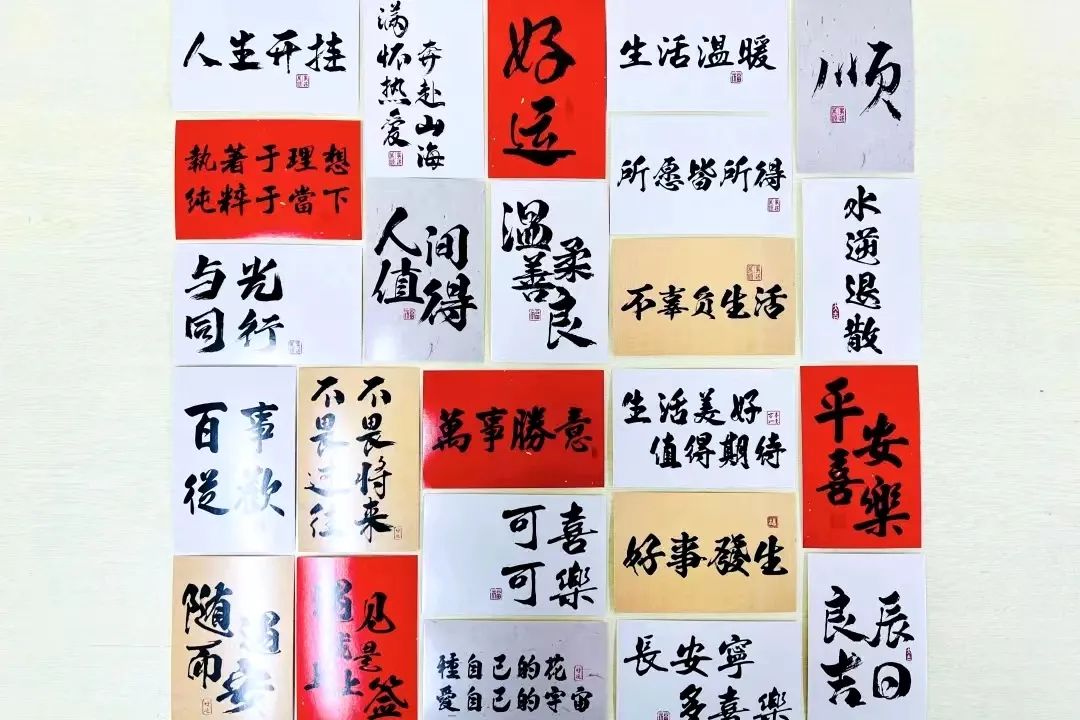 人生开挂
满怀热爱
奔赴山海
好运
生活温暖
顺
執著于理想
纯粹于當下
所愿皆所得
与光
同行
人间
值得
温柔
善良
不辜负生活
水逆退散
百事
從歡
不畏将来
不畏过往
萬事勝意
生活美好
值得期待
平安
喜樂
可喜
可樂
好事發生
随遇
而安
遇见
就是
上上签
種自己的花
愛自己的宇宙
長安寧
多喜樂
良辰
吉日